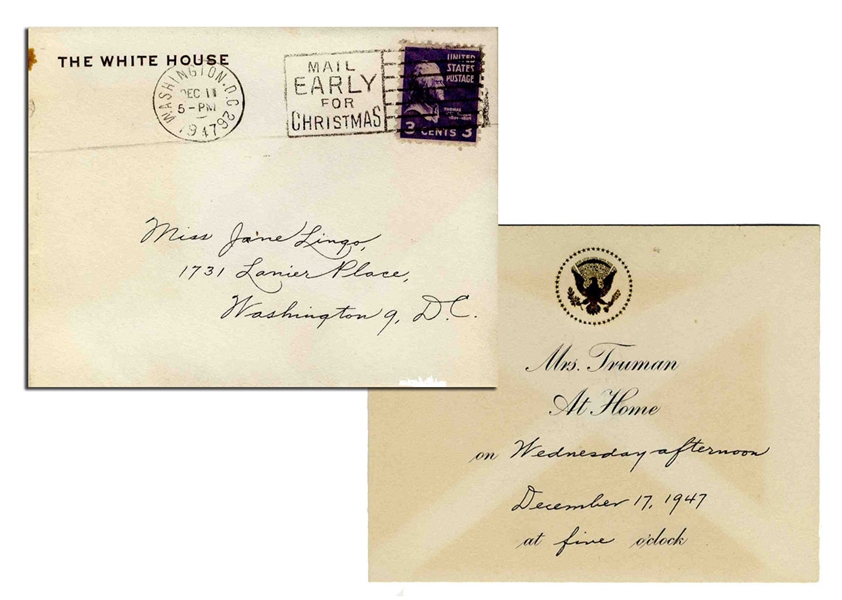 THE WHITE HOUSE
WASHINGTON, D.C. 26
DEC 11
5-PM
1947
MAIL
EARLY
FOR
CHRISTMAS
UNITED
STATES
POSTAGE
THOMAS
3 CENTS 3
Miss Jane Lingo,
1731 Lanier Place,
Washington 9, D.C.
Mrs. Truman
At Home
on Wednesday afternoon
December 17, 1947
at five o'clock